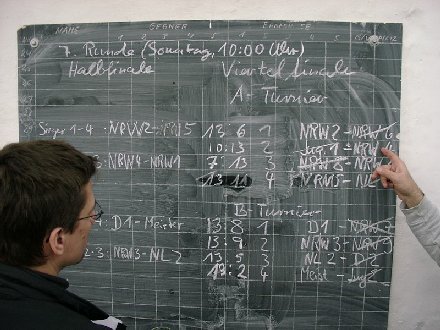 NAME GEGNER
7. Runde (Sonntag, 10:00 Uhr)
Halbfinale Viertelfinale
A-Turnier
Sieger 1-4: NRW2- 13 6 1 NRW2-NRW6
10:13 2 Jug.1-NRW
3: NRW4-NRW1 7:13 3
13 11 4 NL
B-Turnier
1: D1-Meister 13 8 1 D1-NRW
13 9 2 NRW3-NRW5
2-3: NRW3-NL2 13 5 3 NL2-D2
13:2 4 Meist-Jug2